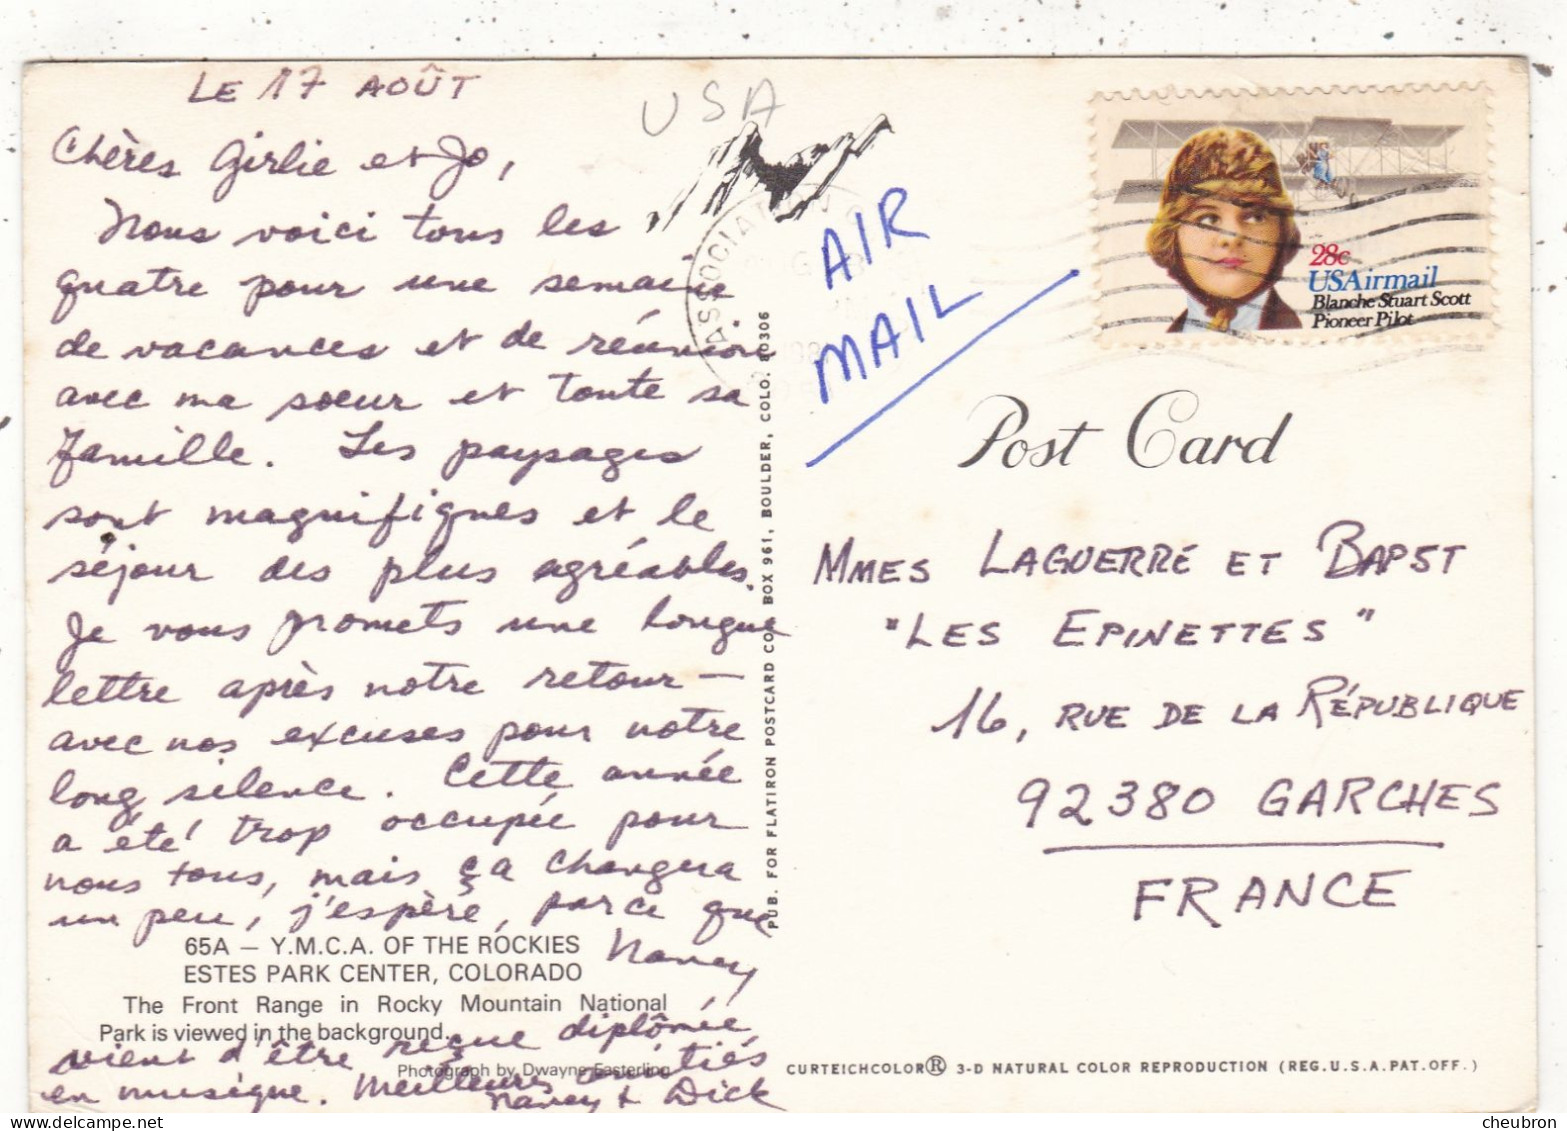 LE 17 AOÛT
USA
Chères Girlie et Jo,
Nous voici tous les
quatre pour une semaine
de vacances et de réunion
avec ma soeur et toute sa
famille. Les paysages
sont magnifiques et le
séjour des plus agréables.
Je vous promets une longue
lettre après notre retour —
avec nos excuses pour notre
long silence. Cette année
a été trop occupée pour
nous tous, mais ça changera
un peu, j'espère, parce que
Nancy
65A – Y.M.C.A. OF THE ROCKIES
ESTES PARK CENTER, COLORADO
The Front Range in Rocky Mountain National
Park is viewed in the background.
Photograph by Dwayne Easterling
vient d'être reçue diplômée
en musique. Meilleures amitiés
Nancy & Dick
PUB. FOR FLATIRON POSTCARD CO., BOX 961, BOULDER, COLO. 80306
ASSOCIATION
AIR
MAIL
28c
USAirmail
Blanche Stuart Scott
Pioneer Pilot
Post Card
MMES LAGUERRE ET BAPST
"LES EPINETTES"
16, RUE DE LA RÉPUBLIQUE
92380 GARCHES
FRANCE
CURTEICHCOLOR® 3-D NATURAL COLOR REPRODUCTION (REG.U.S.A.PAT.OFF.)
© cheubron